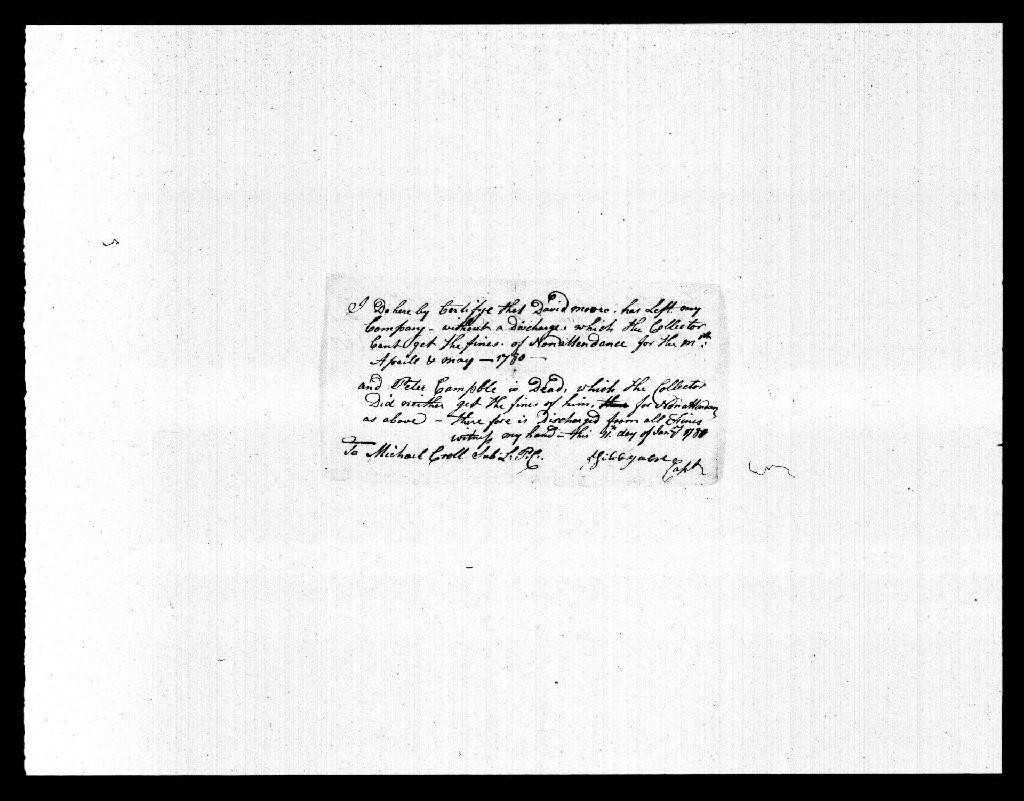 I Do here by Certifye that David moore. has Left my
Company - without a discharge, which the Collector
Cant get the fines. of Nonattendance for the mth:
Aprill & may — 1780 —
and Peter Campble is Dead, which the Collector
Did neither get the fines of him, for Nonattendance
as above - there fore is Discharged from all fines
witness my hand - this day of Janry 1781
To Michael Croll Sub: L. P:C:
Capt